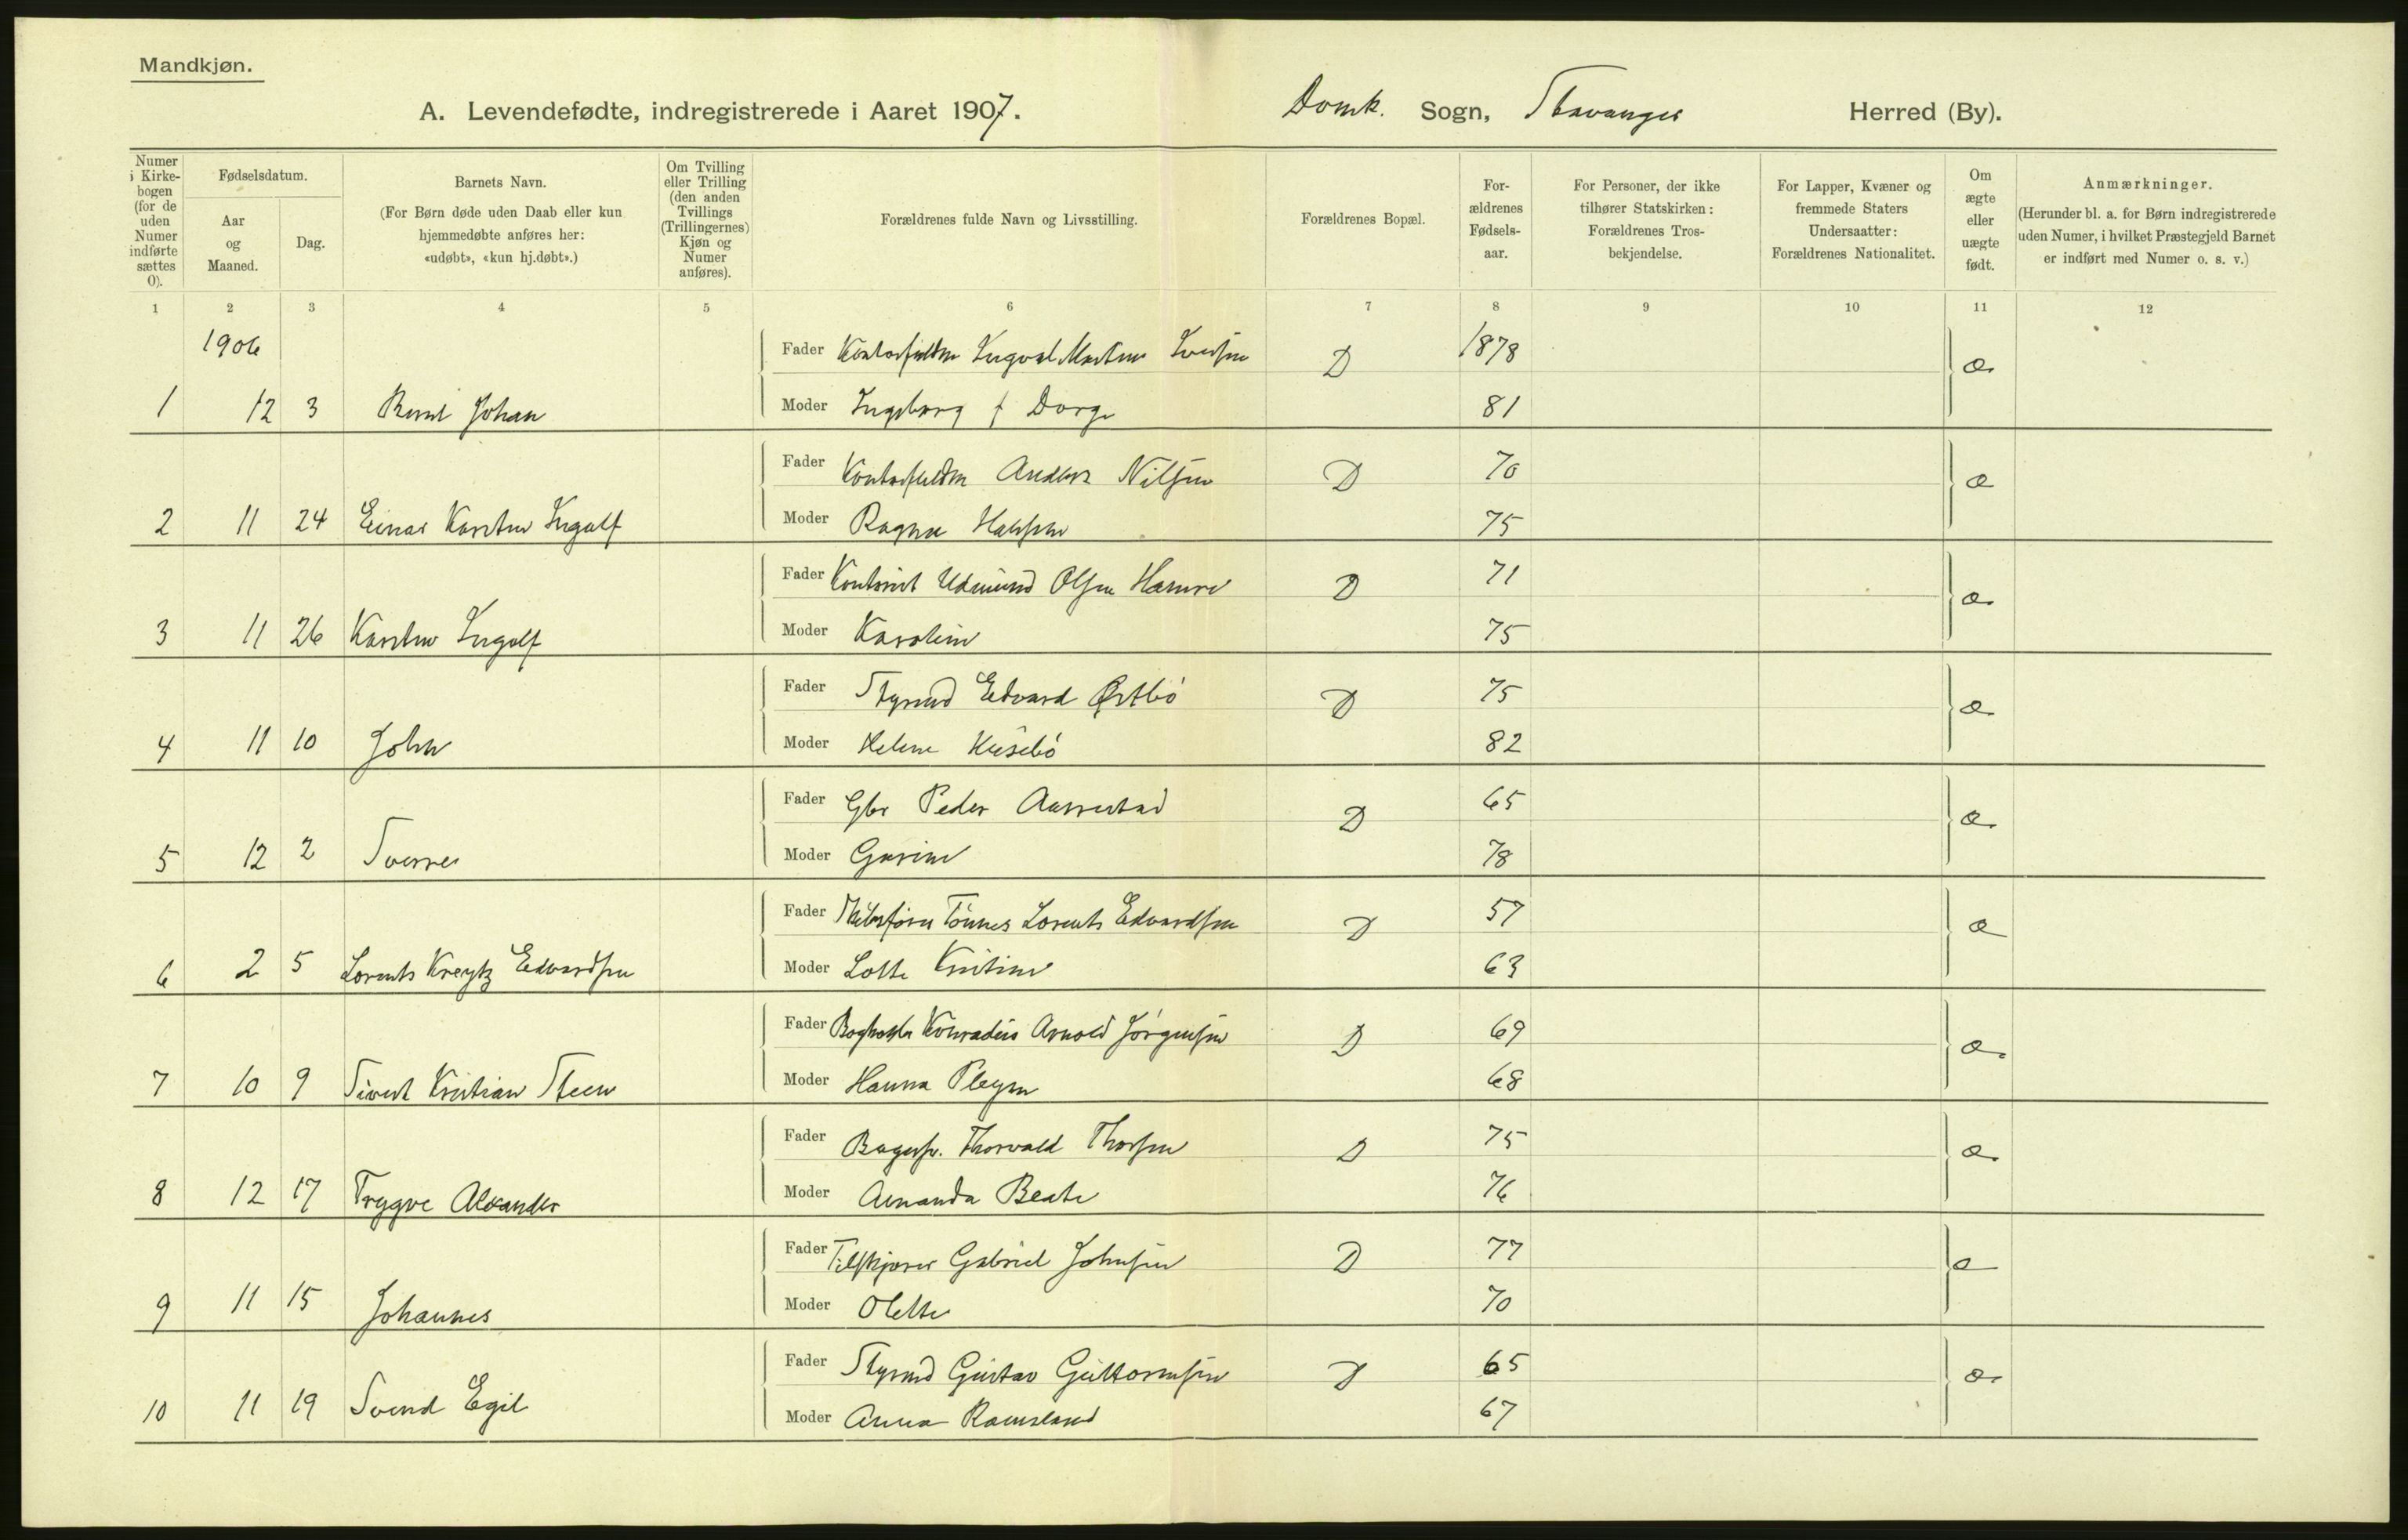 Mandkjøn.
A. Levendefødte, indregistrerede i Aaret 1907.
Domk. Sogn, Stavanger Herred (By).
Numer i Kirke-bogen (for de uden Numer indførte sættes 0).
Fødselsdatum.
Aar og Maaned.
Dag.
Barnets Navn.
(For Børn døde uden Daab eller kun hjemmedøbte anføres her: «udøbt», «kun hj.døbt».)
Om Tvilling eller Trilling (den anden Tvillings (Trillingernes) Kjøn og Numer anføres).
Forældrenes fulde Navn og Livsstilling.
Forældrenes Bopæl.
For-ældrenes Fødsels-aar.
For Personer, der ikke tilhører Statskirken: Forældrenes Tros-bekjendelse.
For Lapper, Kvæner og fremmede Staters Undersaatter: Forældrenes Nationalitet.
Om ægte eller uægte født.
Anmærkninger.
(Herunder bl. a. for Børn indregistrerede uden Numer, i hvilket Præstegjeld Barnet er indført med Numer o. s. v.)
1 2 3 4 5 6 7 8 9 10 11 12
1906
Fader Ingval D 1878 æ
1 12 3 Johan Moder Ingeborg f Dorge 81
Fader Anders Nilsen D 70 æ
2 11 24 Einar Karsten Ingolf Moder Ragna 75
Fader Olsen Hamre D 71 æ
3 11 26 Karsten Ingolf Moder Karoline 75
Fader Styrmd Edvard Østbö D 75 æ
4 11 10 John Moder Helene Husebö 82
Fader Gbr Peder Aarrestad D 65 æ
5 12 2 Sverre Moder Gurine 78
Fader Skibsfører Tönnes Lorents Edvardsen D 57 æ
6 2 5 Lorents Kreytz Edvardsen Moder Lotte Kristine 63
Fader Bogholder Konradus Arnold Jörgensen D 69 æ
7 10 9 Sivert Kristian Steen Moder Hanna Pleym 68
Fader Bagersv. Thorvald Thorsen D 75 æ
8 12 17 Trygve Alexander Moder Amanda Beate 76
Fader Tilskjærer Gabriel Johnsen D 77 æ
9 11 15 Johannes Moder Olette 70
Fader Styrmd Gustav Guttormsen D 65 æ
10 11 19 Svend Egil Moder Anna Ramsland 67